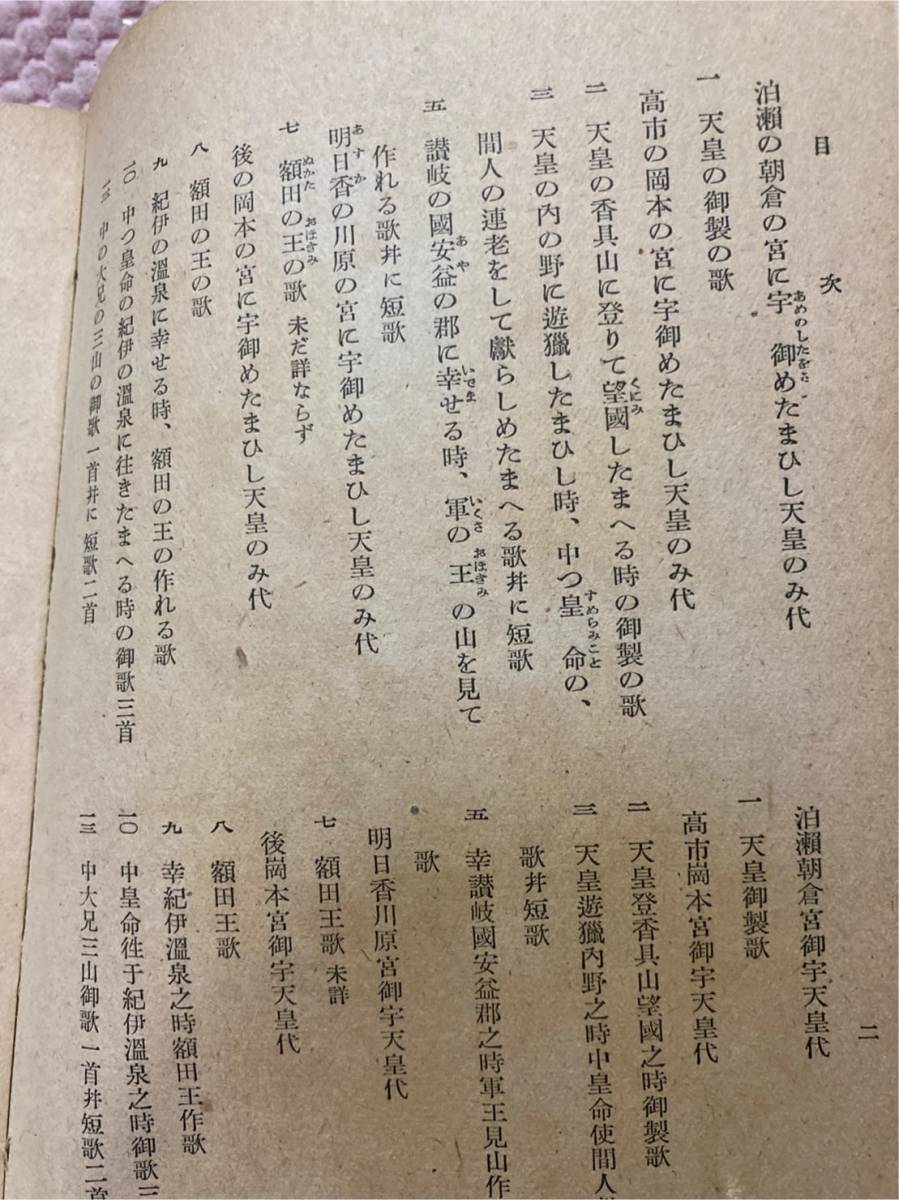 目次
泊瀨の朝倉の宮に宇御めたまひし天皇のみ代
あめのしたをさ
一 天皇の御製の歌
高市の岡本の宮に宇御めたまひし天皇のみ代
二 天皇の香具山に登りて望國したまへる時の御製の歌
くにみ
三 天皇の內の野に遊獵したまひし時、中つ皇命の、
すめらみこと
間人の連老をして獻らしめたまへる歌幷に短歌
五 讃岐の國安益の郡に幸せる時、軍の王の山を見て
あや いでま いくさ おほきみ
作れる歌幷に短歌
明日香の川原の宮に宇御めたまひし天皇のみ代
あすか
七 額田の王の歌 未だ詳ならず
ぬかた おほきみ
後の岡本の宮に宇御めたまひし天皇のみ代
八 額田の王の歌
九 紀伊の溫泉に幸せる時、額田の王の作れる歌
一〇 中つ皇命の紀伊の溫泉に往きたまへる時の御歌三首
一三 中の大兄の三山の御歌一首幷に短歌二首
二
泊瀨朝倉宮御宇天皇代
一 天皇御製歌
高市崗本宮御宇天皇代
二 天皇登香具山望國之時御製歌
三 天皇遊獵內野之時中皇命使間人
歌幷短歌
五 幸讃岐國安益郡之時軍王見山作
歌
明日香川原宮御宇天皇代
七 額田王歌 未詳
後崗本宮御宇天皇代
八 額田王歌
九 幸紀伊溫泉之時額田王作歌
一〇 中皇命徃于紀伊溫泉之時御歌三
一三 中大兄三山御歌一首幷短歌二首